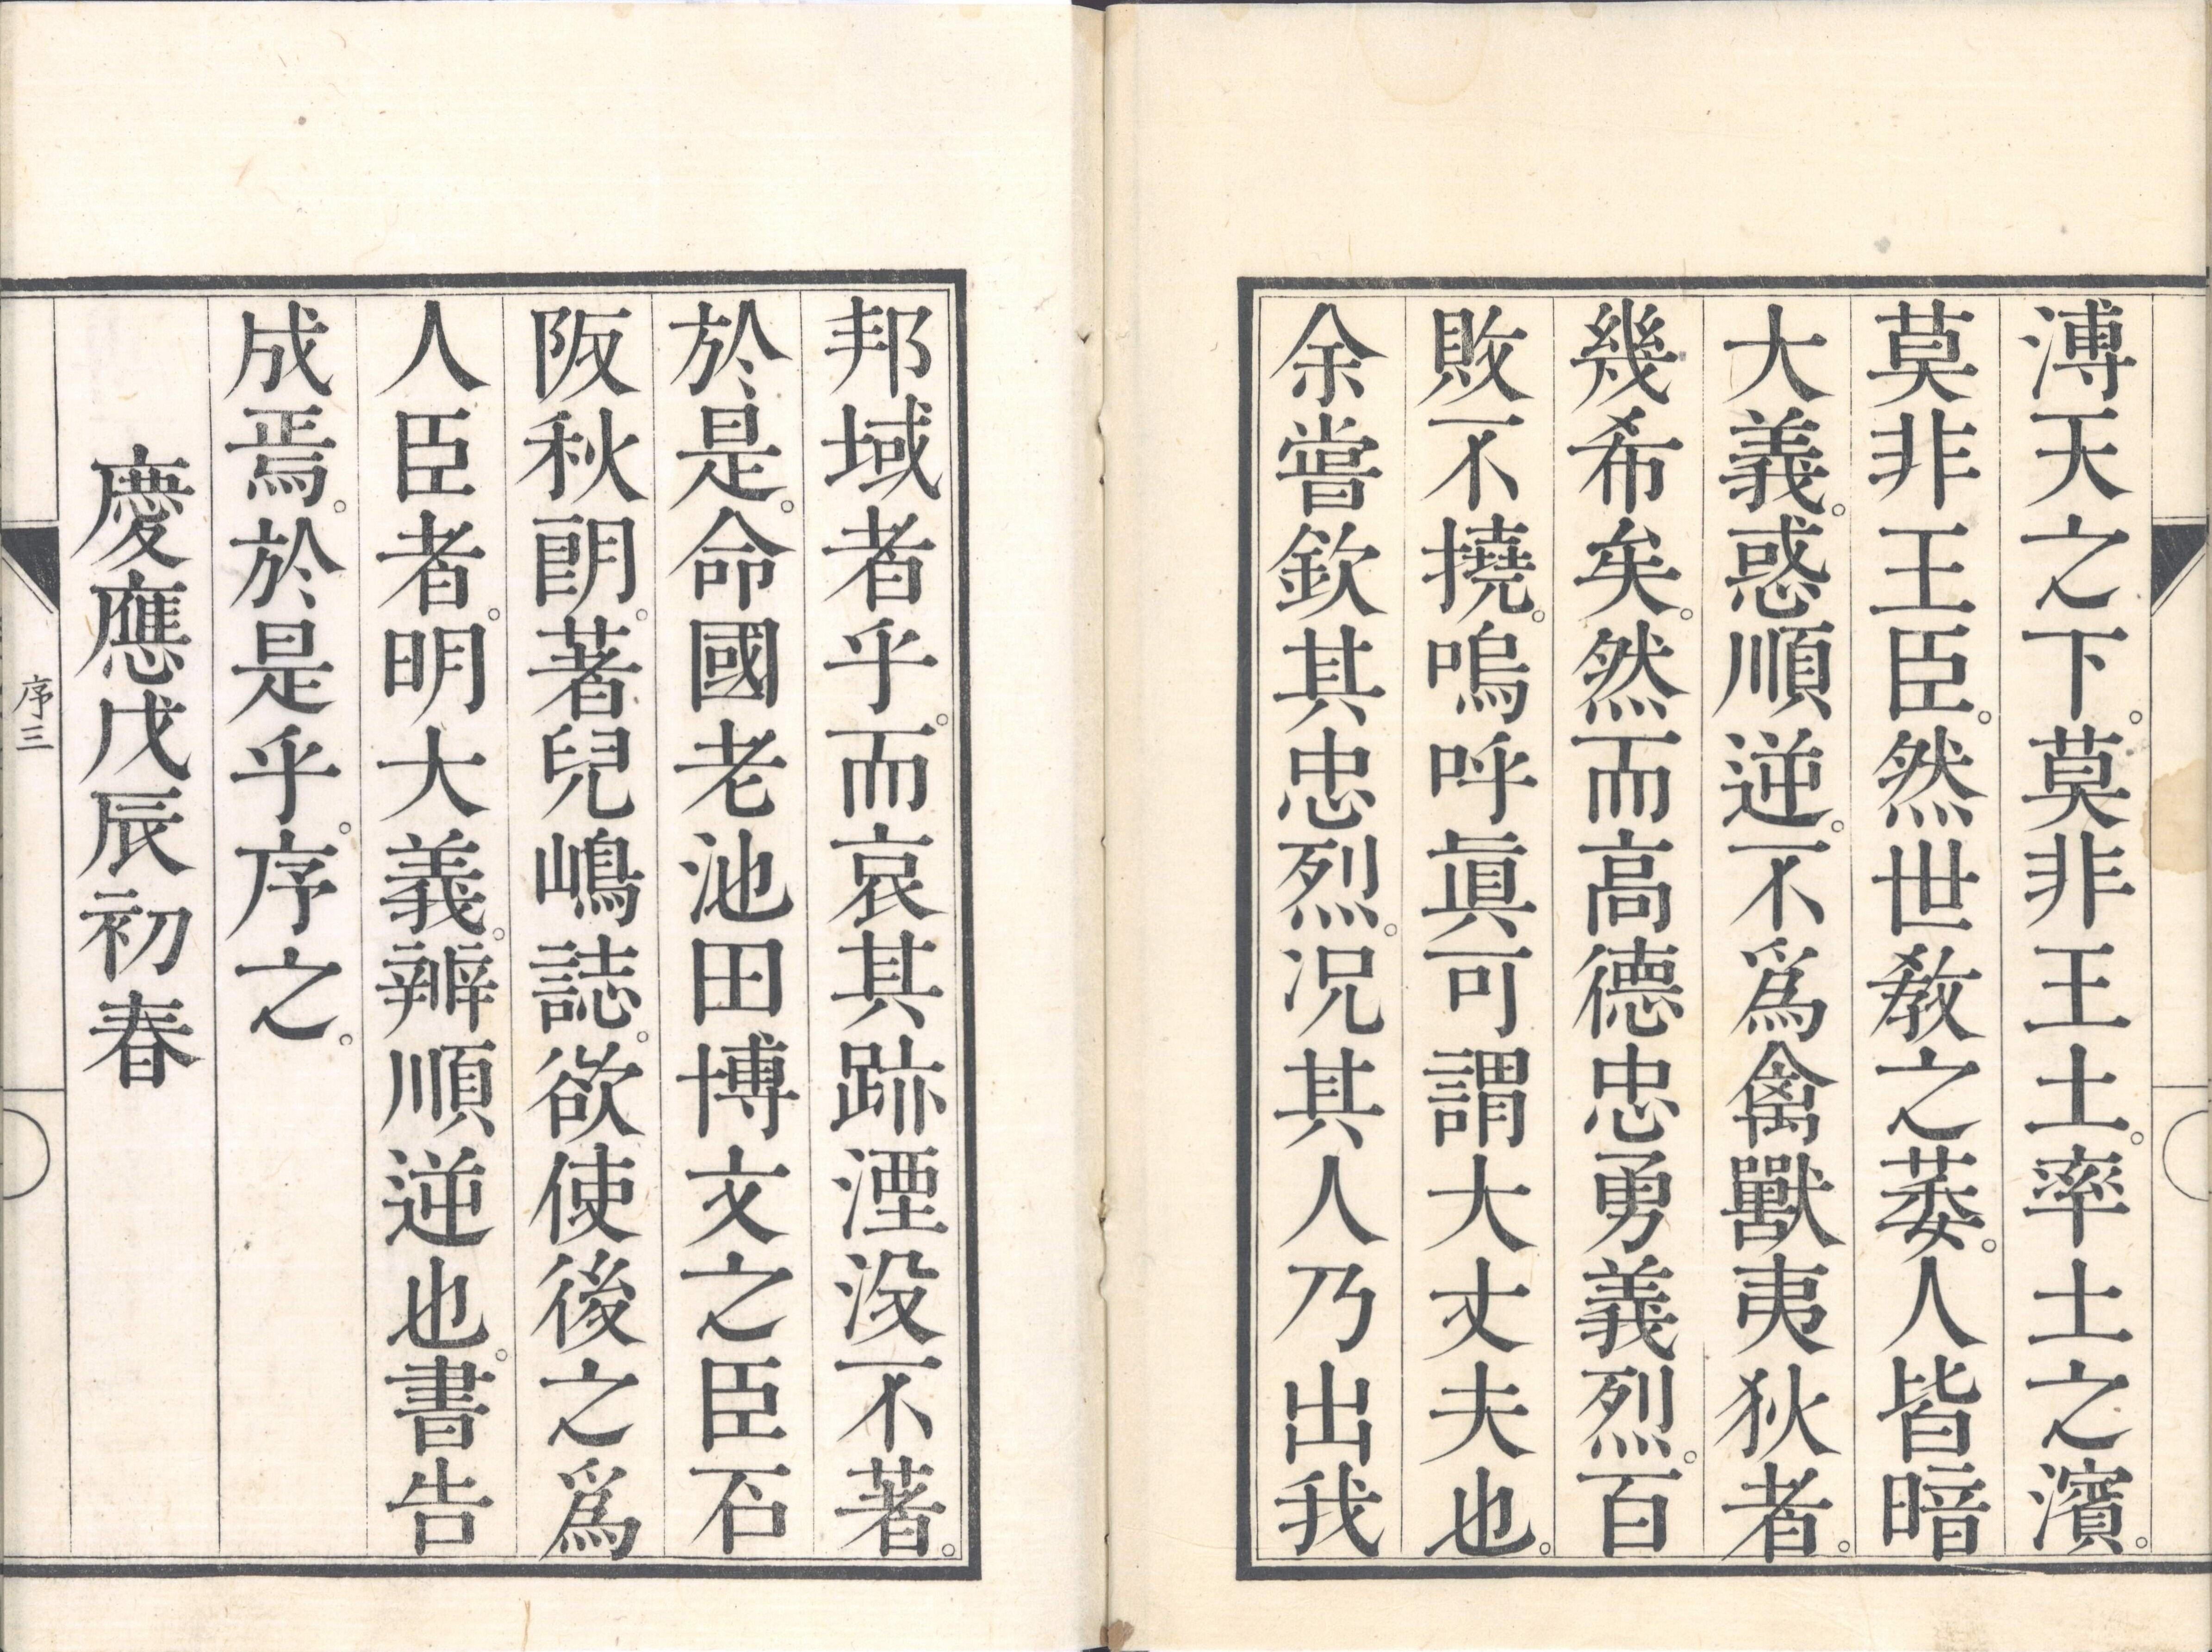 溥天之下。莫非王土。率土之濱。
莫非王臣。然世敎之萎。人皆暗
大義。惑順逆。不爲禽獸夷狄者。
幾希矣。然而高德忠勇義烈。百
敗不撓。嗚呼眞可謂大丈夫也。
余嘗欽其忠烈。况其人乃出我
邦域者乎。而哀其跡湮没不著。
於是。命國老池田博文之臣石
阪秋朗。著兒嶋誌。欲使後之爲
人臣者。明大義。辨順逆也。書告
成焉。於是乎。序之。
慶應戊辰初春
序三